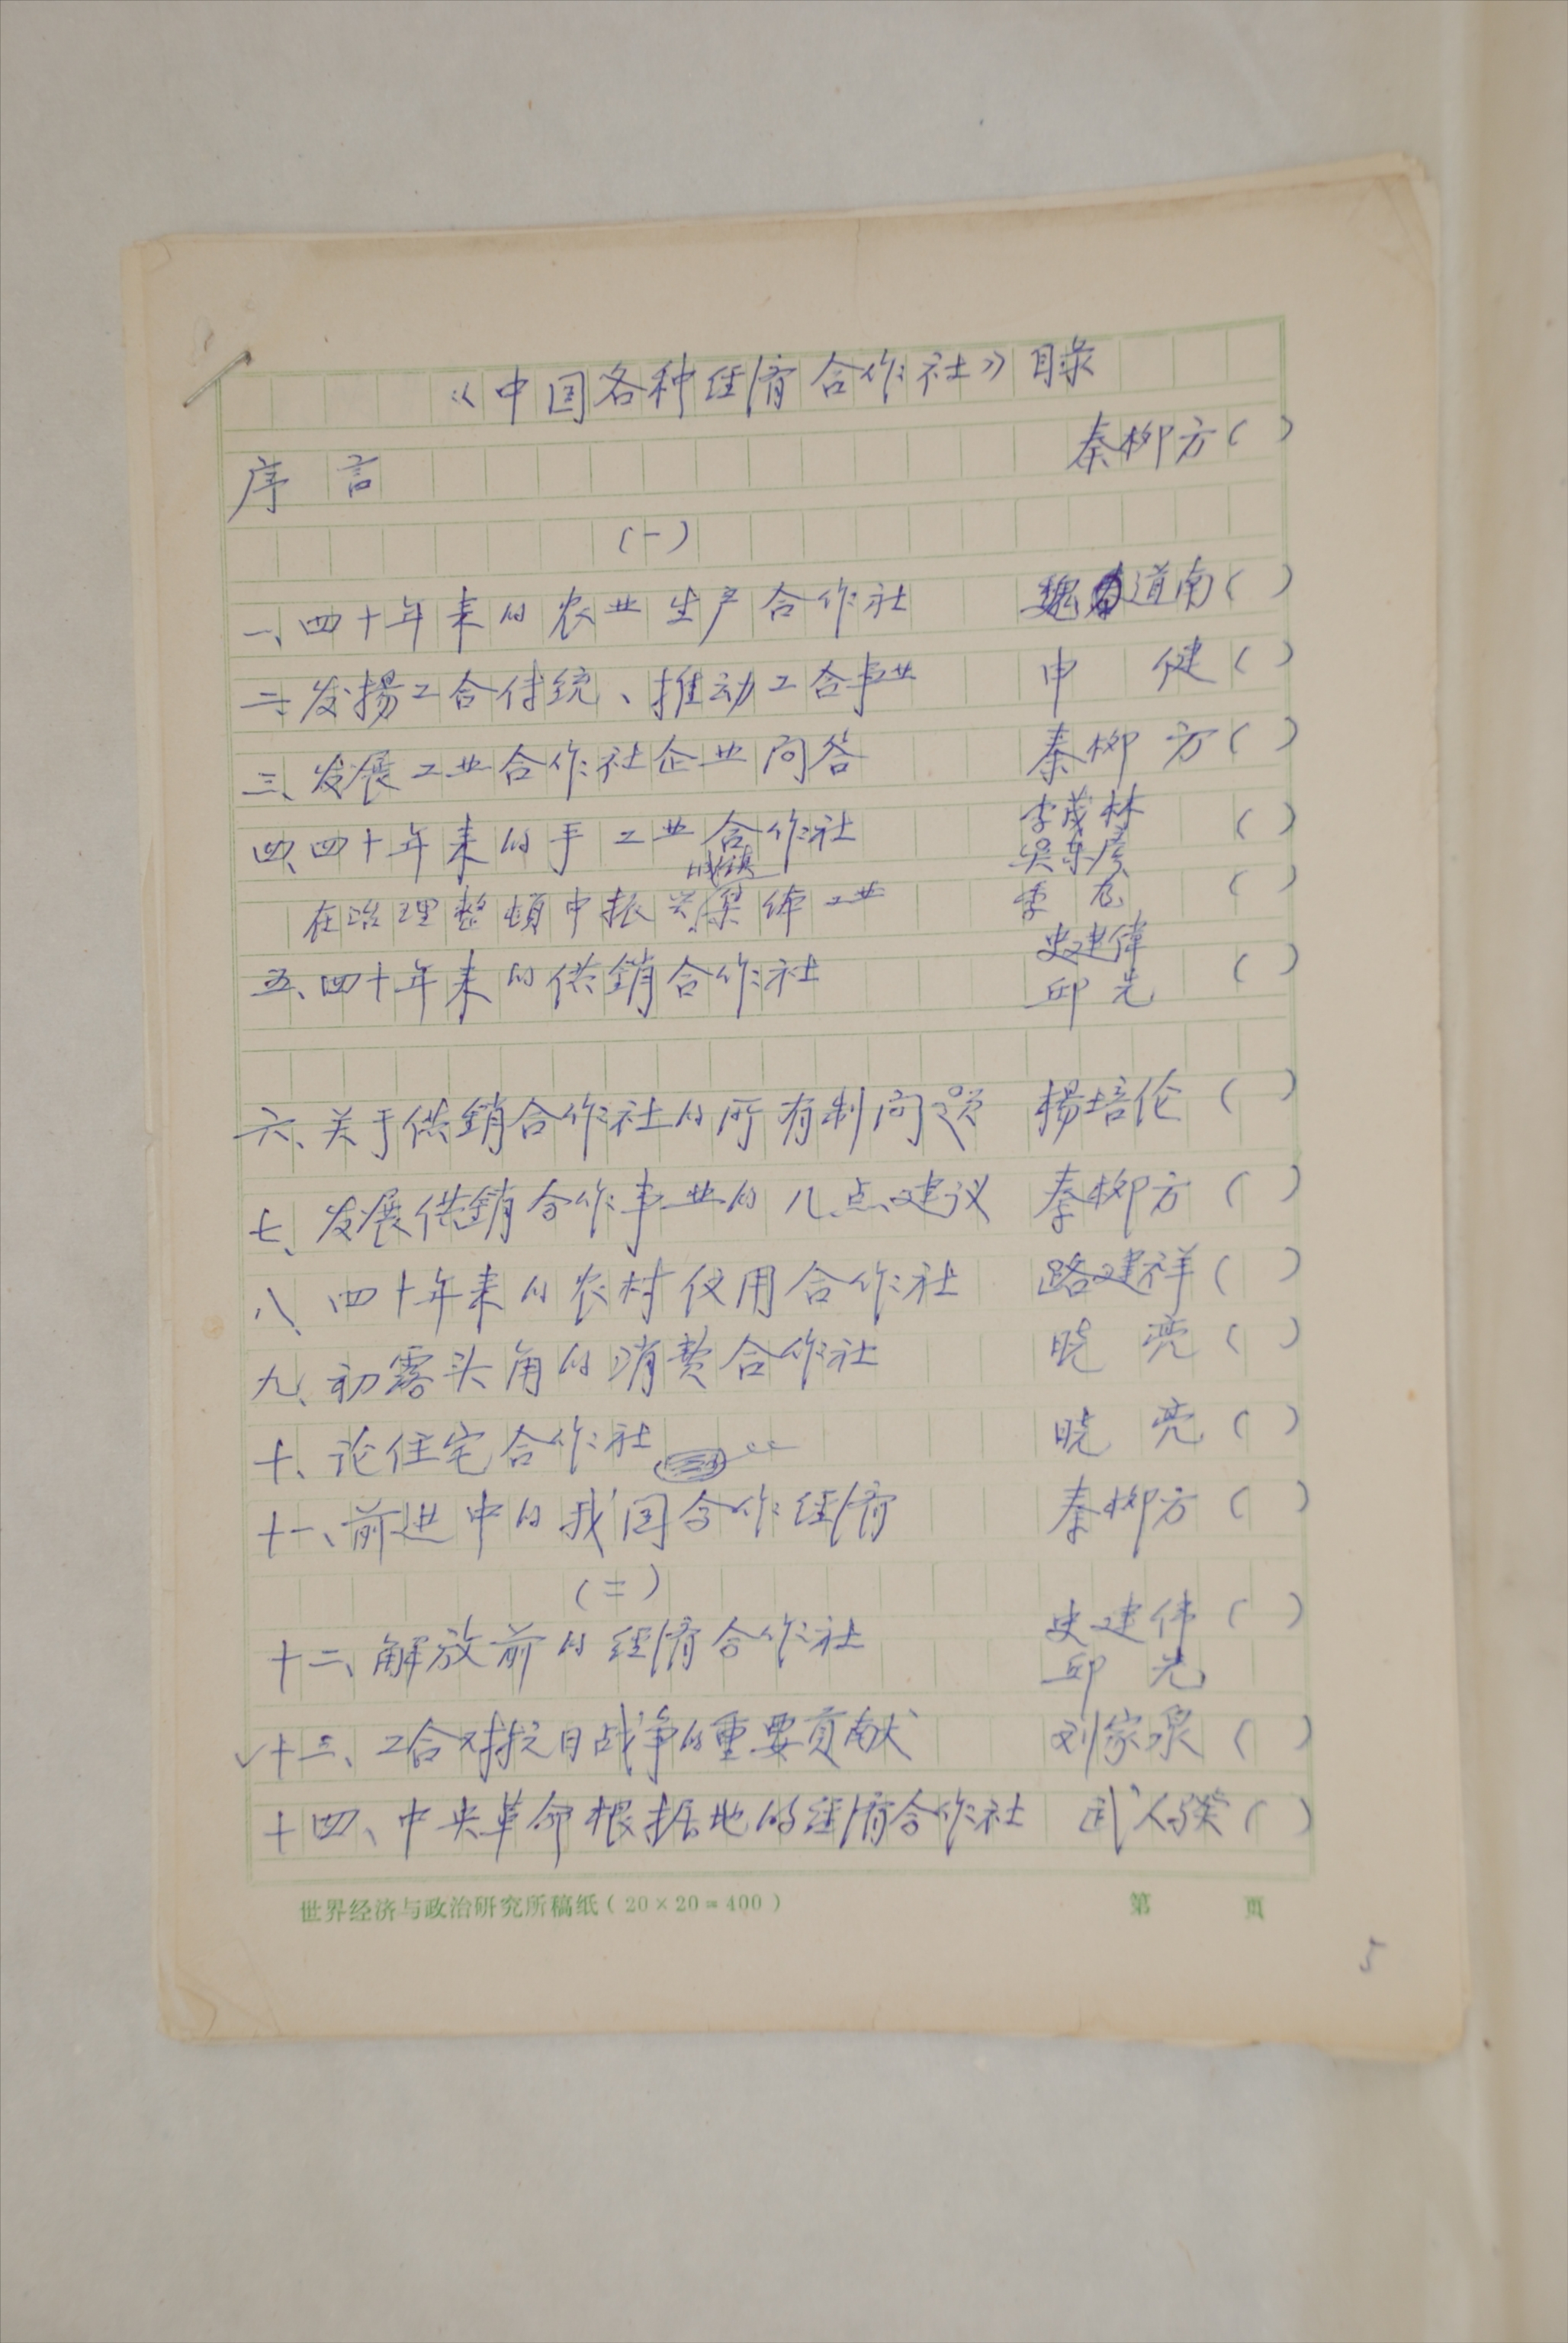 《中国各种经济合作社》目录
序 言 秦柳方( )
(一)
一、四十年来的农业生产合作社 魏道南( )
二、发揚工合传统、推动工合事业 申 健( )
三、发展工业合作社企业问答 秦柳方( )
四、四十年来的手工业合作社 李茂林 吴东彦 ( )
在治理整顿中振兴城镇集体工业 季 龙 ( )
五、四十年来的供銷合作社 史建偉 邱 光 ( )
六、关于供銷合作社的所有制问题 楊培伦( )
七、发展供銷合作事业的几点建议 秦柳方( )
八、四十年来的农村信用合作社 路建祥( )
九、初露头角的消费合作社 晓 亮( )
十、论住宅合作社 晓 亮( )
十一、前进中的我国合作经济 秦柳方( )
(二)
十二、解放前的经济合作社 史建伟 邱 光 ( )
✓十三、工合对抗日战争的重要贡献 刘家泉( )
十四、中央革命根据地的经济合作社 武 ( )
世界经济与政治研究所稿纸(20×20=400) 第 页
5